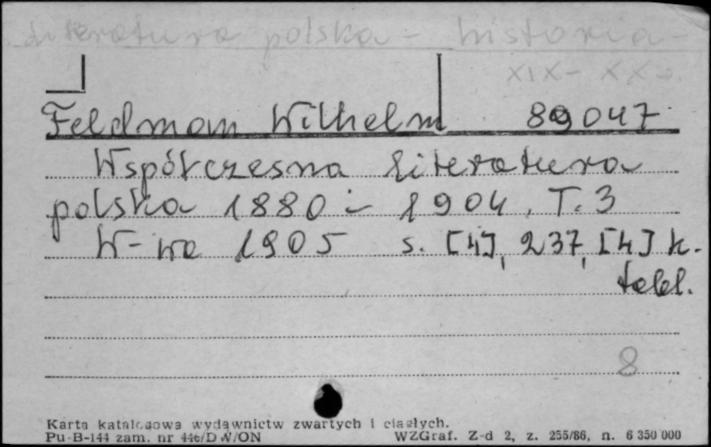 Literatura polska - historia -
XIX - XX w.
Feldman Wilhelm 89047
Współczesna literatura
polska 1880 - 1904, T. 3
W-wa 1905 s. [4], 237, [4] k.
tabl.
8
Karta katalogowa wydawnictw zwartych i ciągłych.
Pu-B-144 zam. nr 44c/DW/ON WZGraf. Z-d 2, z. 255/86, n. 6 350 000